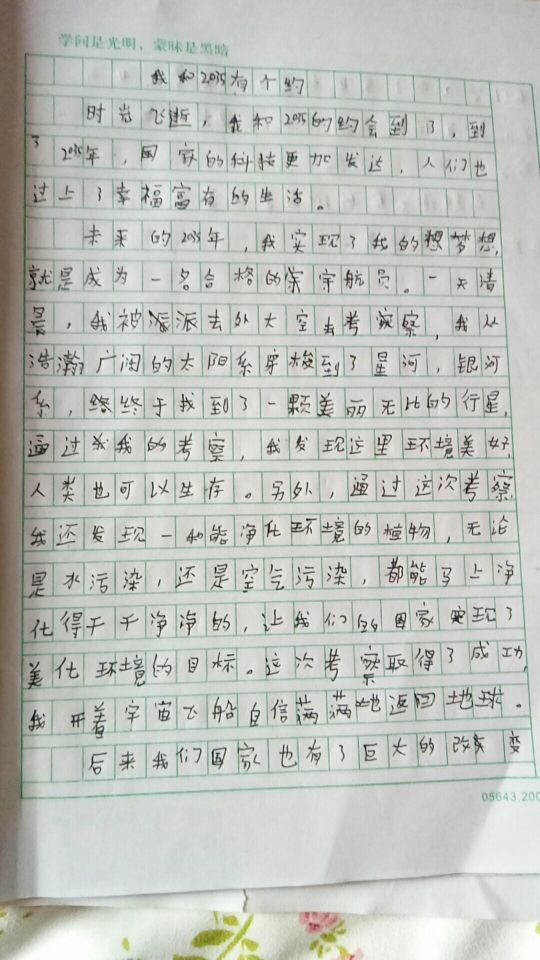 学问是光明，蒙昧是黑暗
我和2035有个约
时光飞逝，我和2035的约会到了，到
了2035年，国家的科技更加发达，人们也
过上了幸福富有的生活。
未来的2035年，我实现了我的想梦想，
就是成为一名合格的宇宇航员。一天清
晨，我被派派去外太空去考察察，我从
浩瀚广阔的太阳系穿梭到了星河，银河
系，终终于找到了一颗美丽无比的行星，
通过我我的考察，我发现这里环境美好，
人类也可以生存。另外，通过这次考察，
我还发现一种能净化环境的植物，无论
是水污染，还是空气污染，都能马上净
化得干干净净的，让我们的国家实现了
美化环境的目标。这次考察取得了成功，
我开着宇宙飞船自信满满地返回地球。
后来我们国家也有了巨大的改变
05643.200